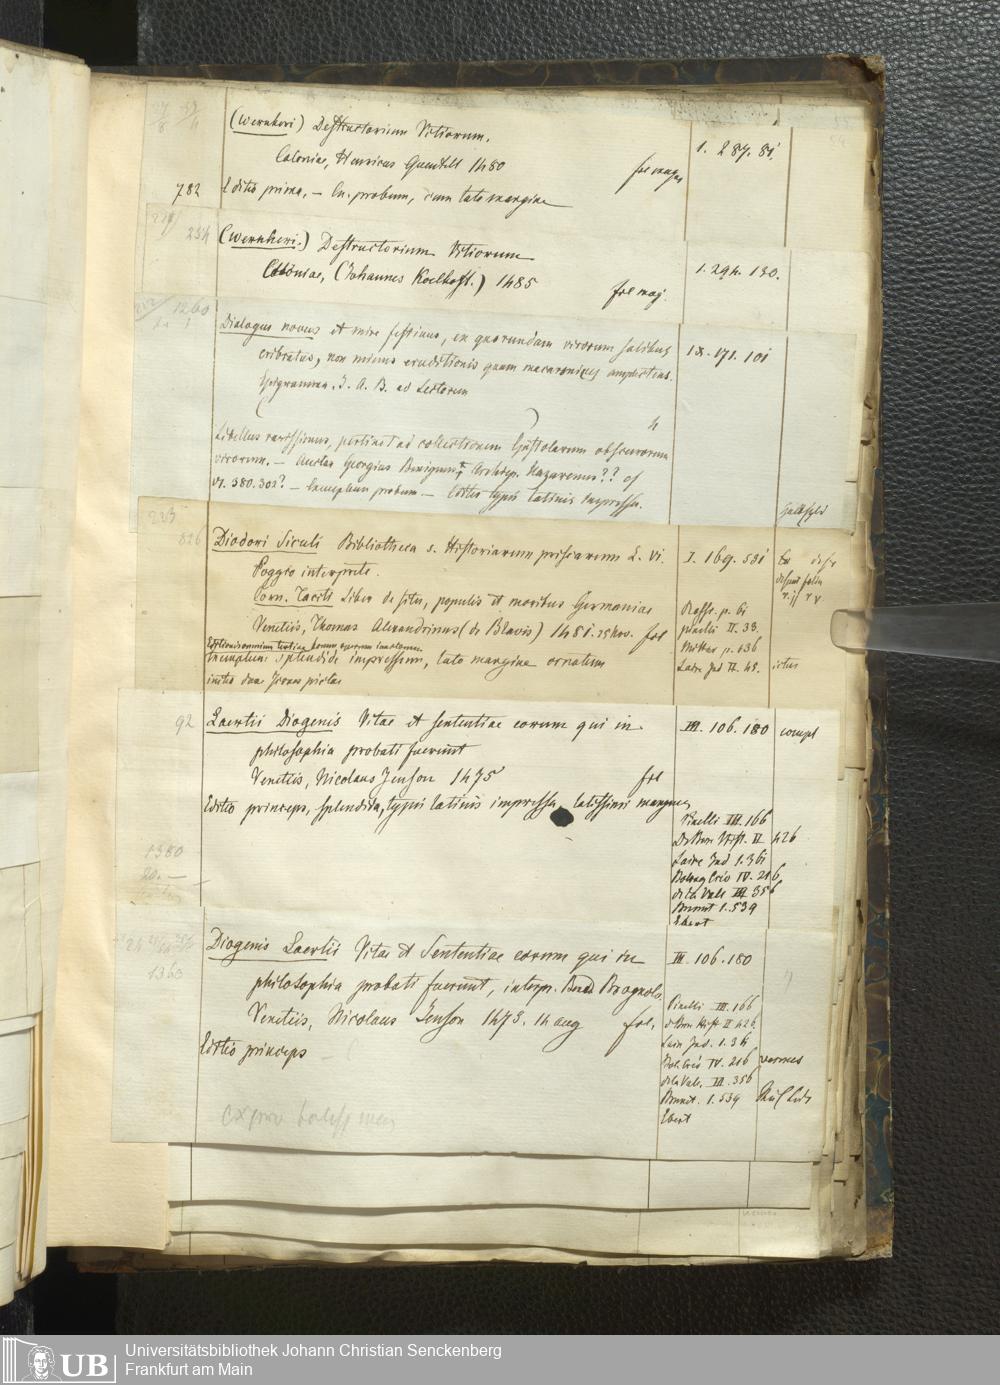 (Wernheri) Destructorium Vitiorum.
Coloniae, Henricus Quentell 1480
fol major
1. 287. 81.
782
Editio prima, – In. probum, cum lato margine
234
(Wernheri.) Destructorium Vitiorum
Coloniae, (Johannes Koelhoff.) 1485
fol maj.
1. 294. 130.
1260
Dialogus novus et mire festivus, ex quorundam virorum salibus
cribratus, non minus eruditionis quam macaronices amplectens.
Epigramma. J. A. B. ad Lectorem
IX. 171. 101
4
Libellus rarissimus, pertinet ad collectionem Epistolarum obscurorum
virorum. – Auctor Georgius Benignus, Archiep. Nazarenus?? cf
VI. 380. 302? – Exemplum probum – Editio typis latinis impressa.
223
826
Diodori Siculi Bibliotheca s. Historiarum priscarum L. VI.
Poggio interprete.
Corn. Taciti Liber de situ, populis et moribus Germaniae
Venetiis, Thomas Alexandrinus (de Blavis) 1481. 25 Nov. fol
Editionis omnium tertiae horum operum
Exemplum splendide impressum, lato margine ornatum
initio duae Icones pictae
I. 169. 531
Raffs. p. 61
Pinelli II. 33
p. 136
Laire Ind II. 48.
92
Laertii Diogenis Vitae et sententiae eorum qui in
philosophia probati fuerunt
Venetiis, Nicolaus Jenson 1475
fol
Editio princeps, splendida, typis latinis impressa latissimi margines
III. 106. 180
compl
Pinelli III. 166
De Bure Hist. II 426
Laire Ind 1. 361
IV. 216
de la Vall III 356
Brunet 1. 539
Ebert
1380
20. –
1363
Diogenis Laertii Vitae et Sententiae eorum qui in
philosophia probati fuerunt, interpr. Brognolo.
Venetiis, Nicolaus Jenson 1475. 14 aug
fol.
Editio princeps
III. 106. 180
Pinelli III. 166
de Bure Hist II 426
Lair Ind. 1. 36
IV. 216
de la Vall. III. 356
Brunet. 1. 539
Ebert
UB
Universitätsbibliothek Johann Christian Senckenberg
Frankfurt am Main